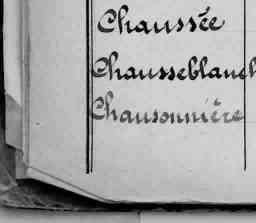 Chaussée
Chausseblanch
Chausonnière